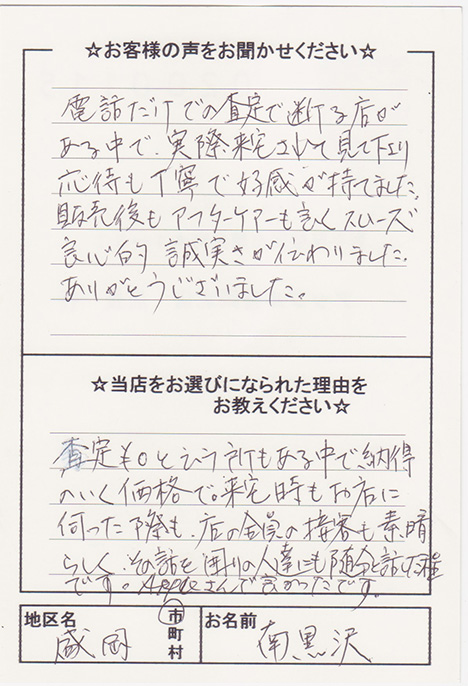 ☆お客様の声をお聞かせください☆
電話だけでの査定で断る店が
ある中で、実際来宅されて見て下さり
応待も丁寧で好感が持てました。
販売後もアフターケアーも良くスムーズ
良心的 誠実さが伝わりました。
ありがとうございました。
☆当店をお選びになられた理由を
お教えください☆
査定¥0という所もある中で納得
のいく価格で。来宅時もお店に
伺った際も、店の全員の接客も素晴
らしく、その話を周りの人達にも随分と話した程
です。さんで良かったです。
地区名
盛岡
市
町
村
お名前
南黒沢